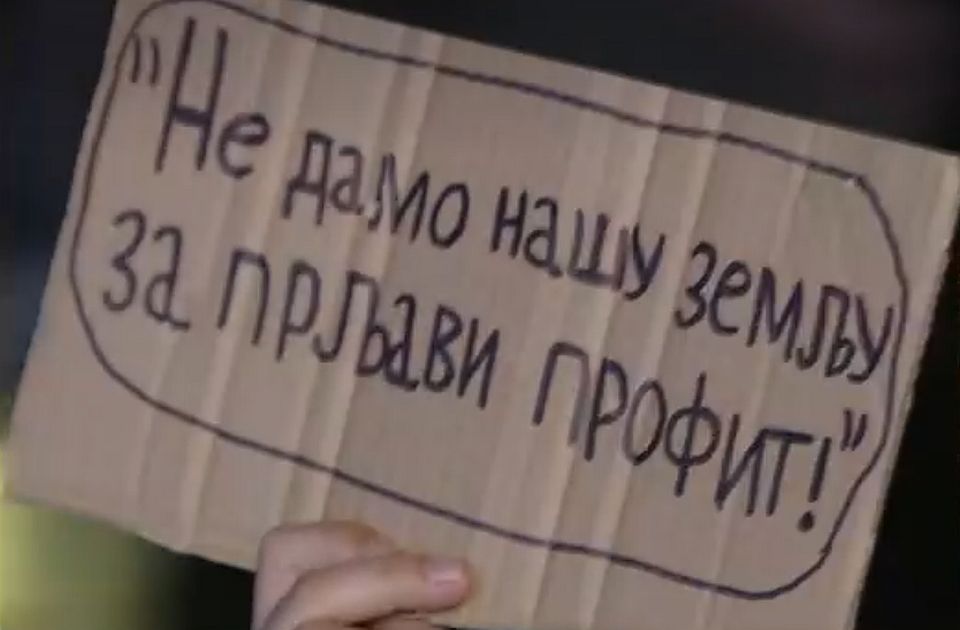 "Не дамо нашу земљу
за прљави профит!"